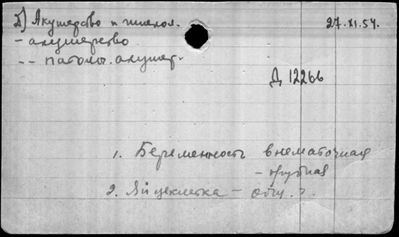 Д) Акушерство и гинекол. 27.XI.54.
- акушерство
-- патолог. акушер.
Д 12266
1. Беременность внематочная
- трубная
2. Яйцеклетка -